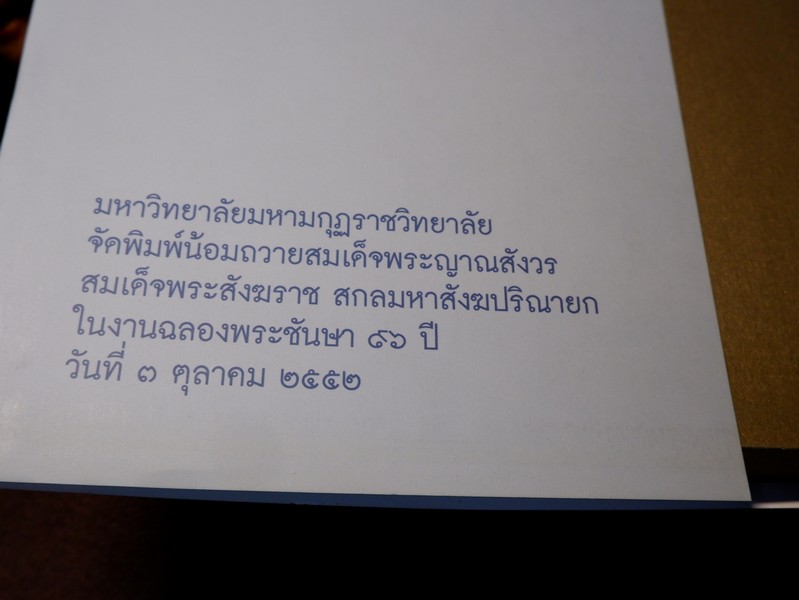 มหาวิทยาลัยมหามกุฏราชวิทยาลัย
จัดพิมพ์น้อมถวายสมเด็จพระญาณสังวร
สมเด็จพระสังฆราช สกลมหาสังฆปริณายก
ในงานฉลองพระชันษา ๙๖ ปี
วันที่ ๓ ตุลาคม ๒๕๕๒